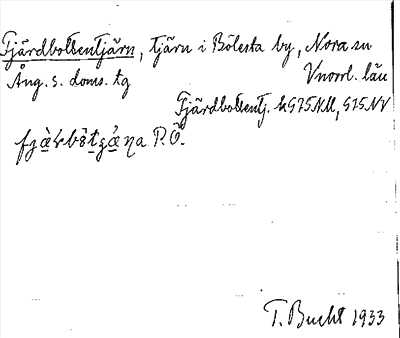 Fjärdbottentjärn, tjärn i Bölesta by, Nora sn
Ång. s. doms. tg Vnorrl. län
Fjärdbottentj. k G75NV, G75NV
P.Ö.
T. Bucht 1933